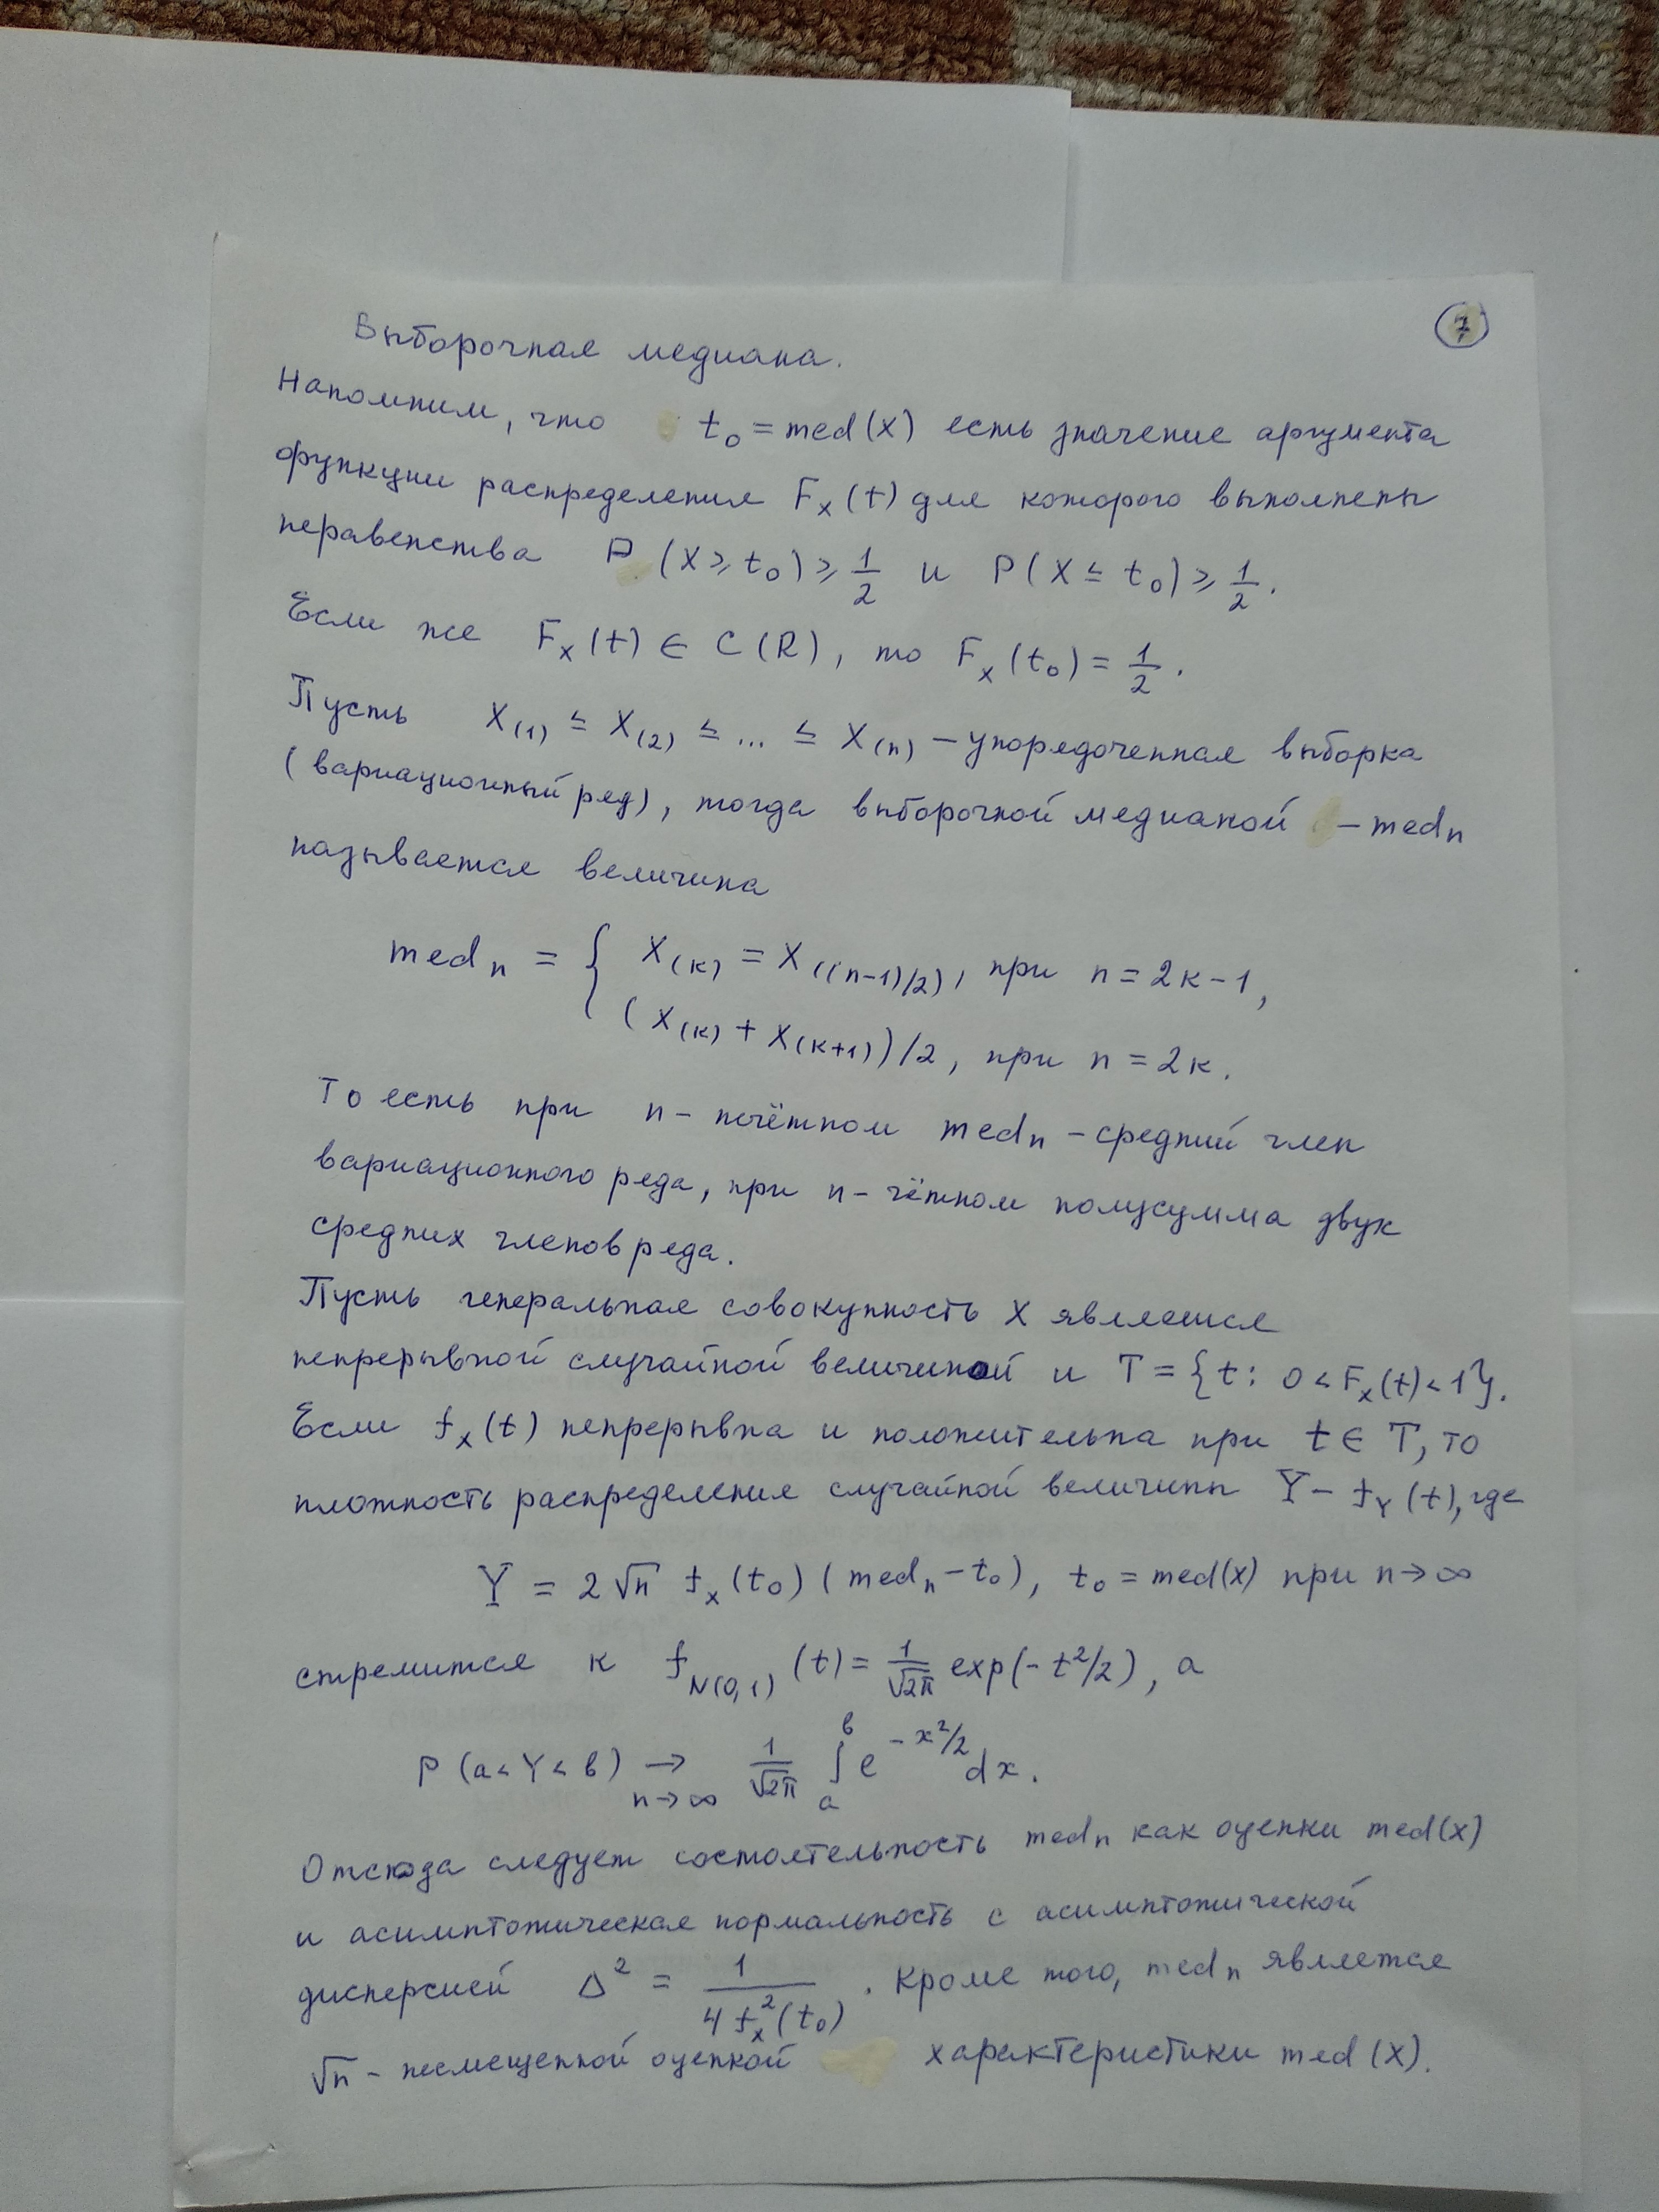 7
Выборочная медиана.
Напомним, что t₀ = med(X) есть значение аргумента
функции распределения Fₓ(t) для которого выполнены
неравенства P(X ≥ t₀) ≥ 1/2 и P(X ≤ t₀) ≥ 1/2.
Если же Fₓ(t) ∈ C(R), то Fₓ(t₀) = 1/2.
Пусть X₍₁₎ ≤ X₍₂₎ ≤ ... ≤ X₍ₙ₎ – упорядоченная выборка
(вариационный ряд), тогда выборочной медианой – medₙ
называется величина
medₙ = { X_(k) = X_((n-1)/2), при n = 2k-1,
(X_(k) + X_(k+1))/2, при n = 2k.
То есть при n - нечётном medₙ - средний член
вариационного ряда, при n - чётном полусумма двух
средних членов ряда.
Пусть генеральная совокупность X является
непрерывной случайной величиной и T = {t: 0 < Fₓ(t) < 1}.
Если fₓ(t) непрерывна и положительна при t ∈ T, то
плотность распределения случайной величины Y – f_Y(t), где
Y = 2√n fₓ(t₀)(medₙ - t₀), t₀ = med(X) при n → ∞
стремится к f_N(0,1)(t) = 1/√2π exp(-t²/2), а
P(a < Y < b) →_(n→∞) 1/√2π ∫_a^b e^(-x²/2) dx.
Отсюда следует состоятельность medₙ как оценки med(X)
и асимптотическая нормальность с асимптотической
дисперсией Δ² = 1/(4fₓ²(t₀)). Кроме того, medₙ является
√n - несмещенной оценкой характеристики med(X).